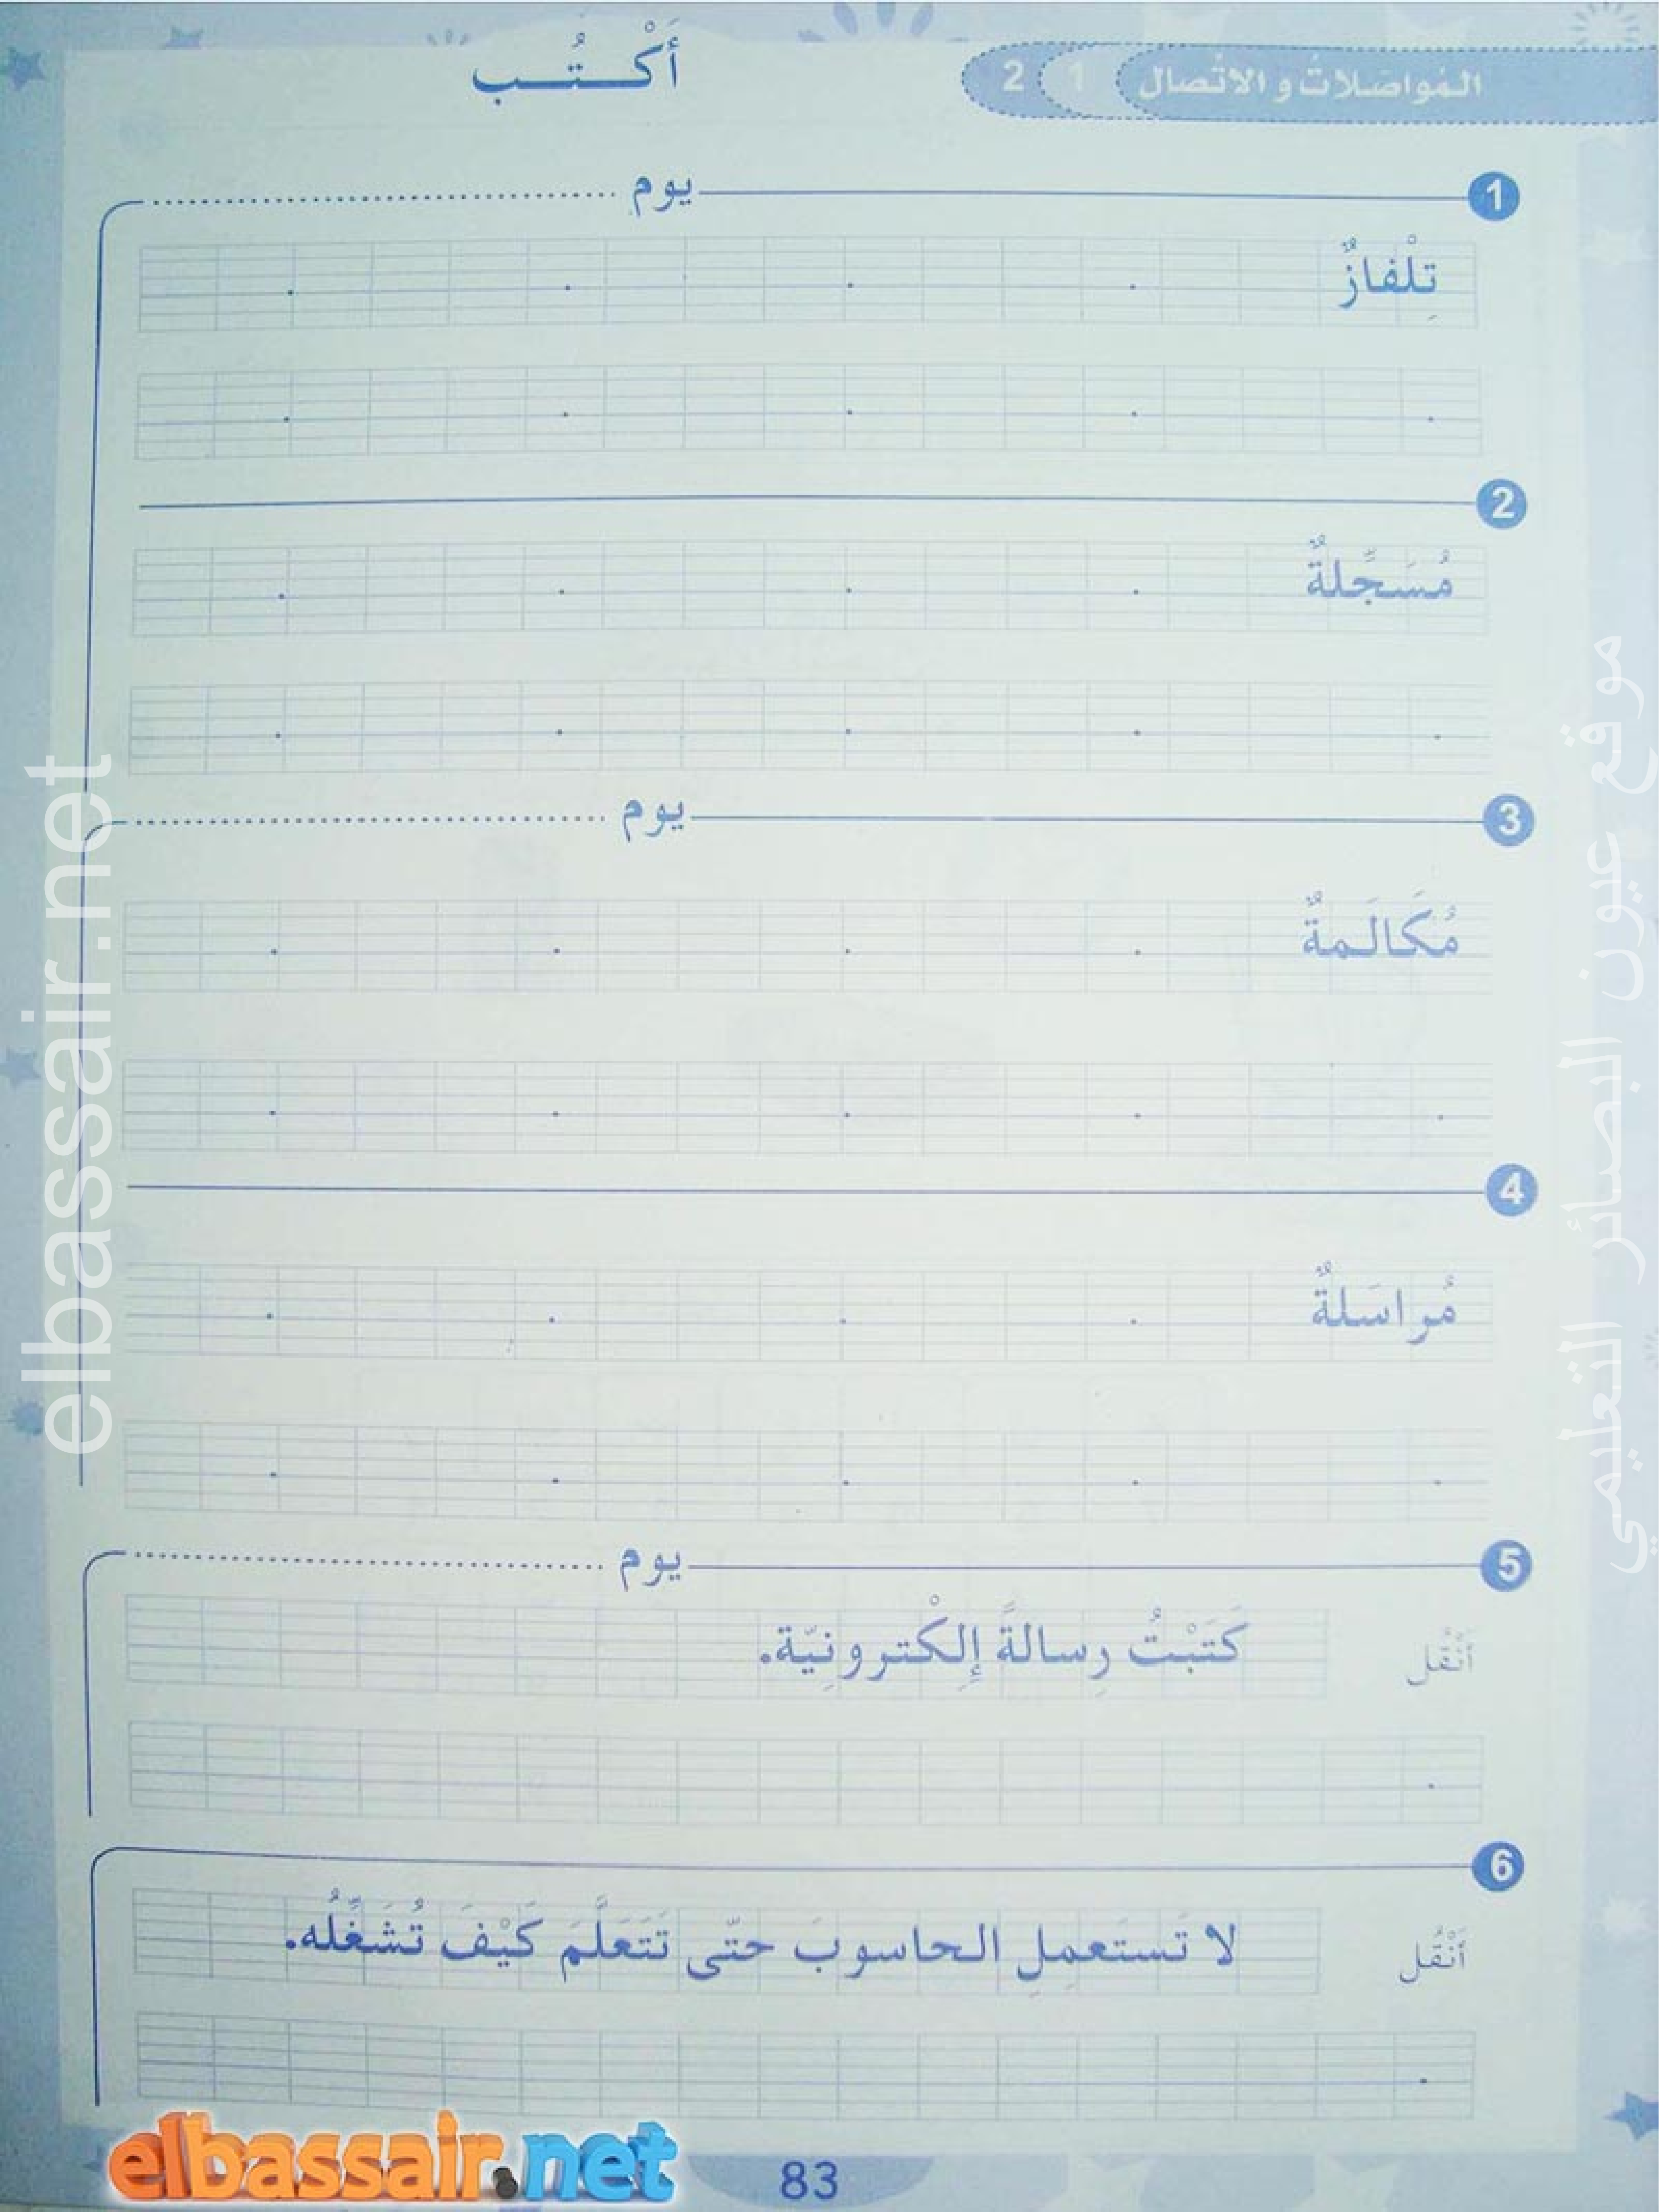 المُواصَلاتُ و الاتّصال 1 2
أَكْـتُـب
1 يوم ........................................
تِلْفازٌ
2
مُسَجِّلةٌ
3 يوم ........................................
مُكَالَـمةٌ
4
مُراسَلةٌ
5 يوم ........................................
أَنْقُل كَتَبْتُ رِسالةً إِلِكْترونِيّة.
6
أَنْقُل لا تَستَعمِلِ الحاسوبَ حتّى تَتَعَلَّمَ كَيْفَ تُشَغِّلُه.
83
elbassair.net
elbassair.net
موقع عيون البصائر التعليمي